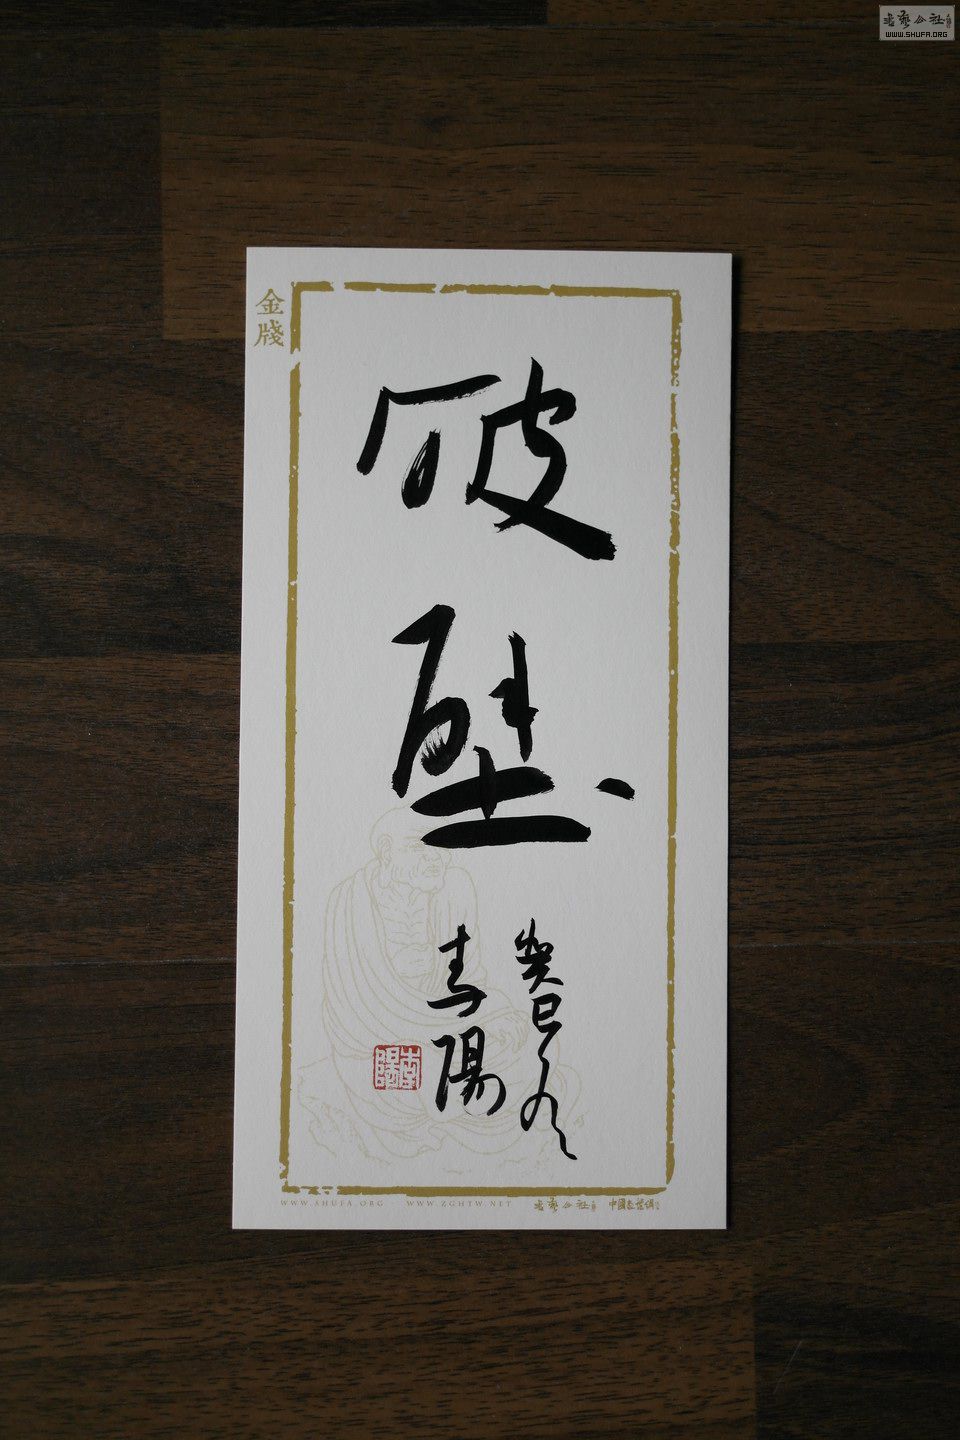 書藝公社
WWW.SHUFA.ORG
金牋
破壁
癸巳九
春陽
WWW.SHUFA.ORG
WWW.ZGHTW.NET
書藝公社